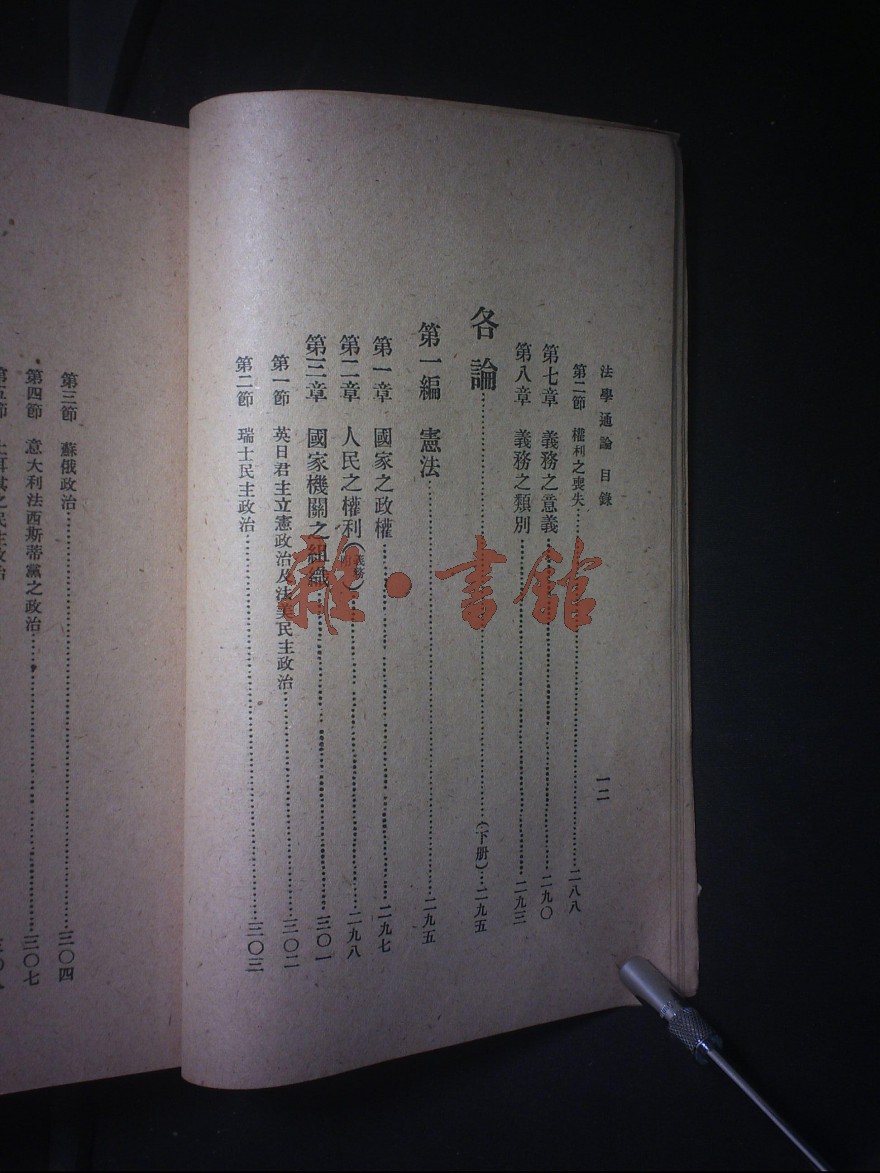 法學通論　目錄　一二
第二節　權利之喪失……二八八
第七章　義務之意義……二九〇
第八章　義務之類別……二九三
各論……(下册)……二九五
第一編　憲法……二九五
第一章　國家之政權……二九七
第二章　人民之權利(附義務)……二九八
第三章　國家機關之組織……三〇一
第一節　英日君主立憲政治及法美民主政治……三〇二
第二節　瑞士民主政治……三〇三
第三節　蘇俄政治……三〇四
第四節　意大利法西斯蒂黨之政治……三〇七
第五節　土耳其之民主政治
雜·書館